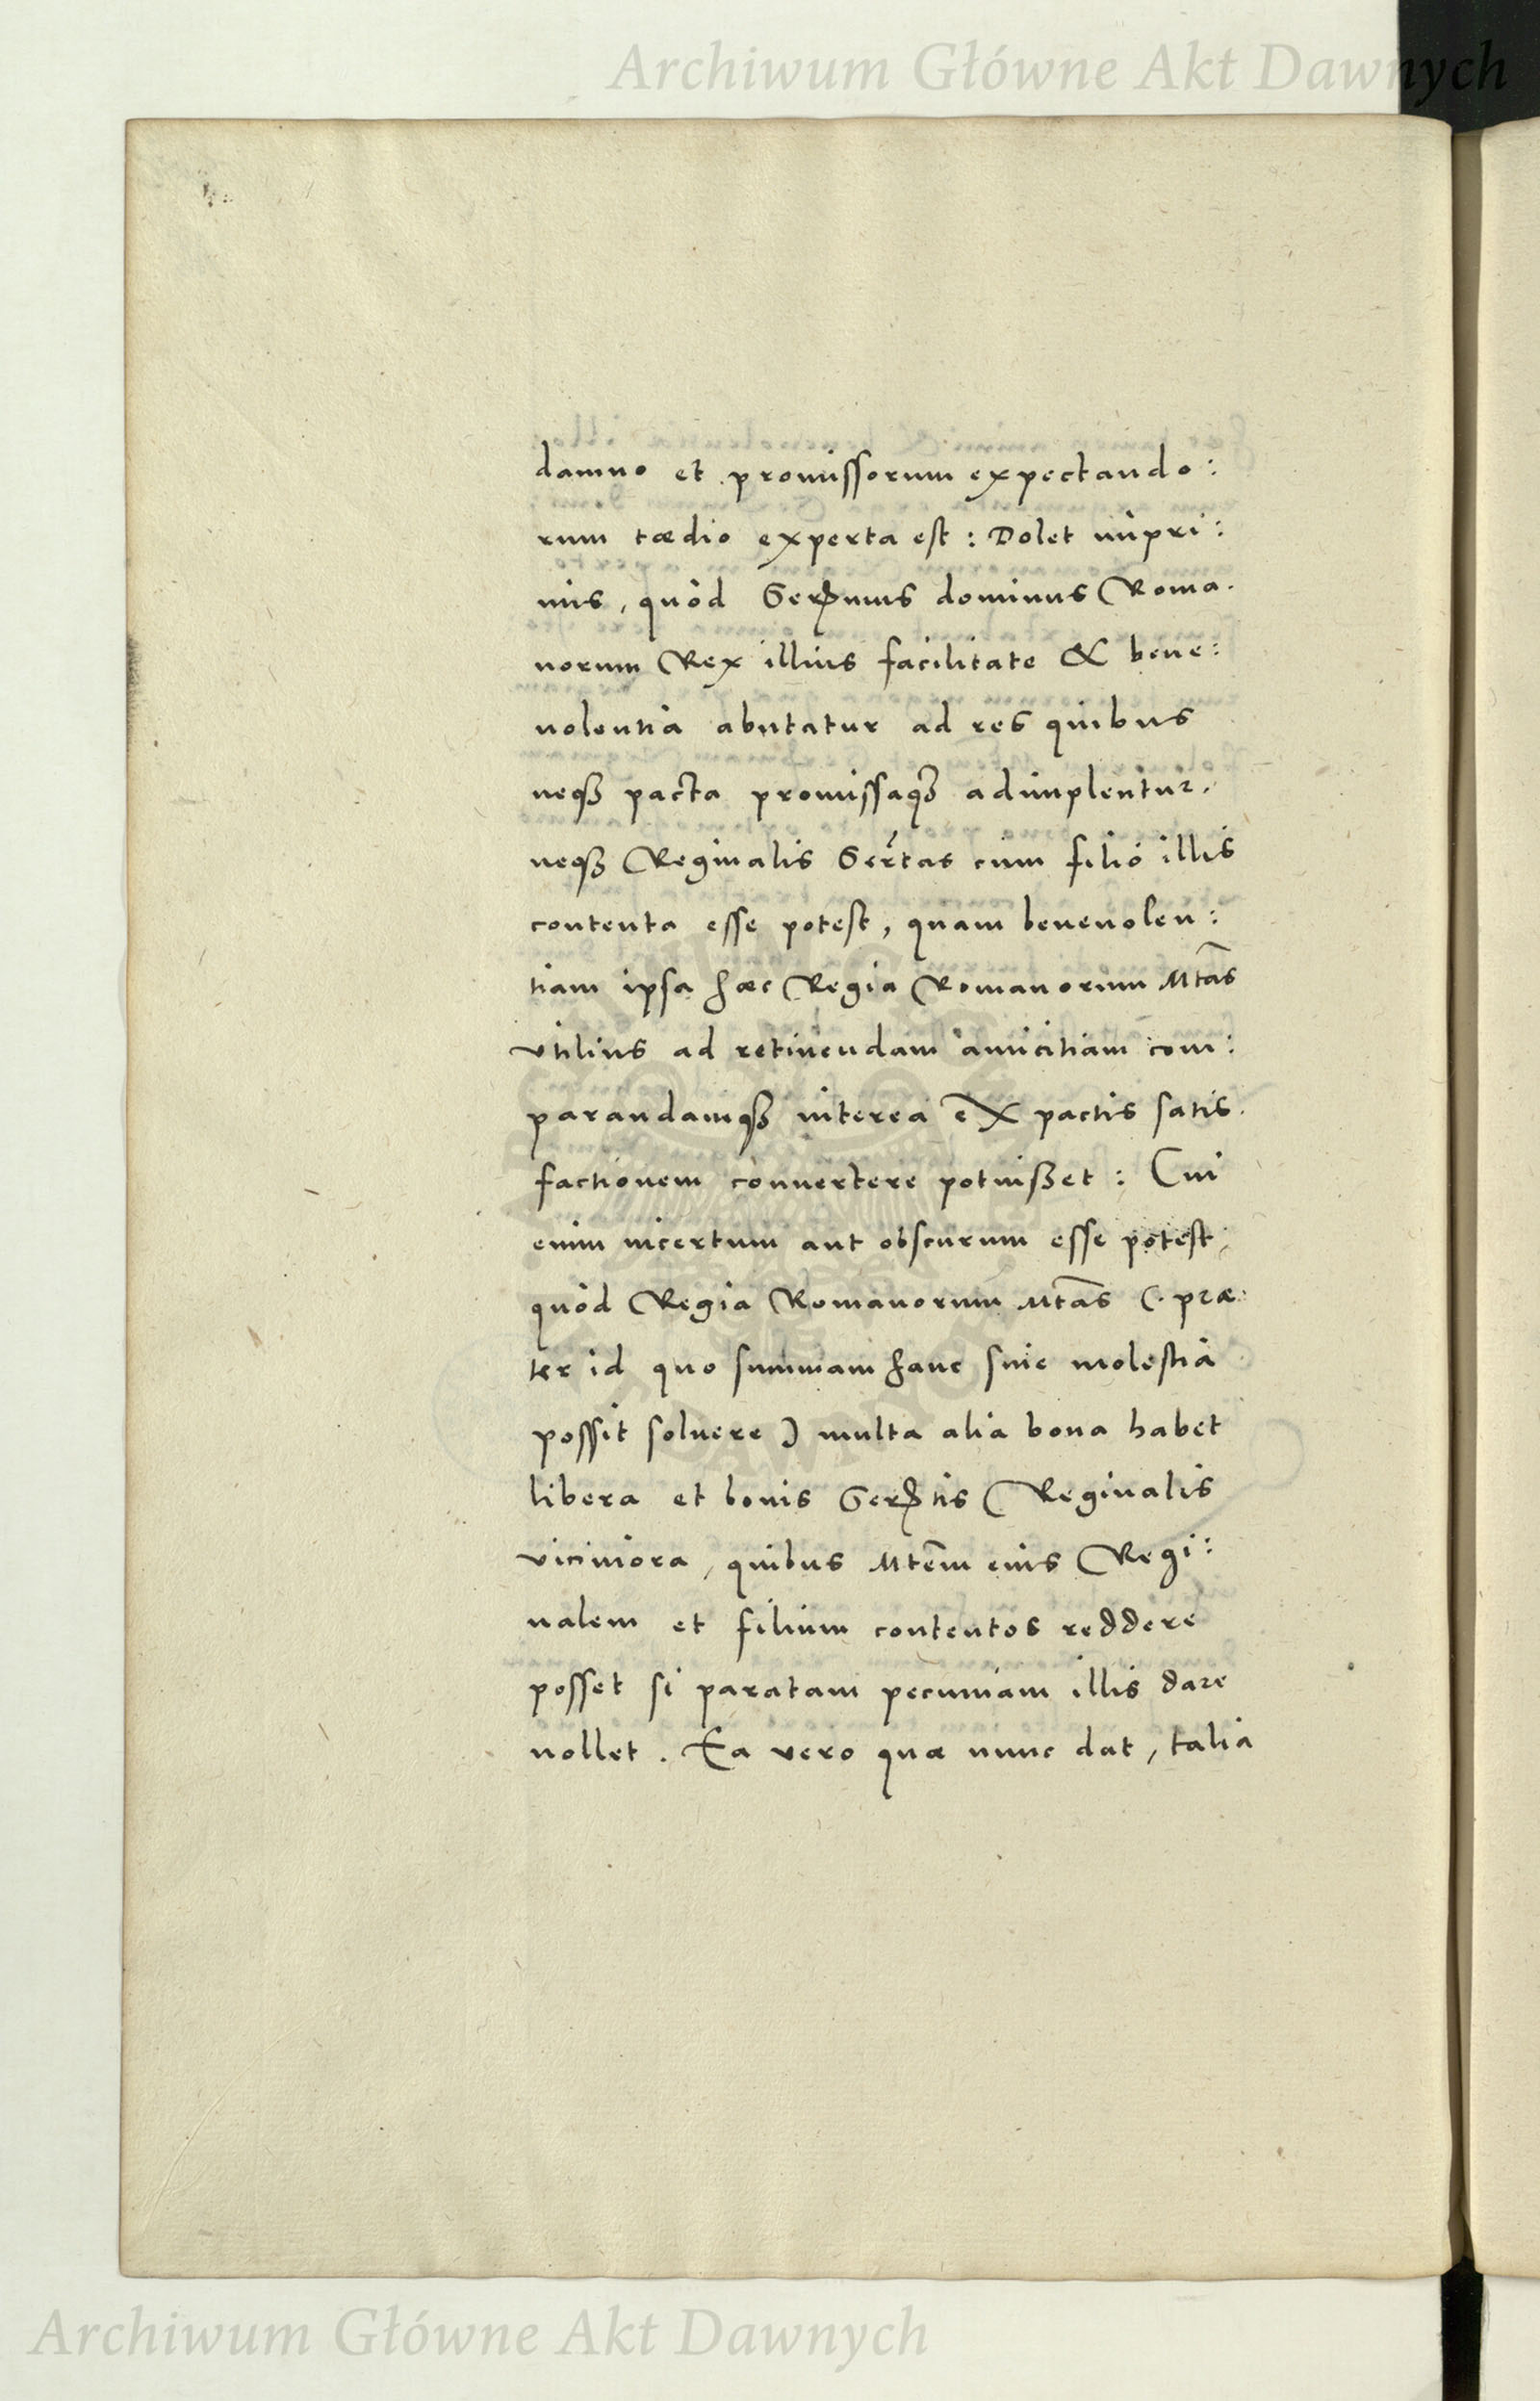 Archiwum Główne Akt Dawnych
damno et promissorum expectando:
rum tædio experta est: Dolet inpri:
mis, quòd Serꝑmus dominus Roma.
norum Rex illius facilitate & bene:
uolentia abutatur ad res quibus
neqꝫ pacta promissaqꝫ adimplentur.
neqꝫ Reginalis Serᵗtas cum filio illis
contenta esse potest, quam beneuolen:
tiam ipsa hæc Regia Romanorum Mtãs
vtilius ad retinendam amicitiam com:
parandamqꝫ interea ex pactis satis.
factionem conuertere potuisset: Cui
enim incertum aut obscurum esse potest,
quòd Regia Romanorum Mtãs (. præ:
ter id quo summam hanc sine molestia
possit soluere) multa alia bona habet
libera et bonis Serꝑtis Reginalis
viciniora, quibus Mtẽm eius Regi:
nalem et filium contentos reddere
posset si paratam pecuniam illis dare
nollet. Ea vero quæ nunc dat, talia
Archiwum Główne Akt Dawnych